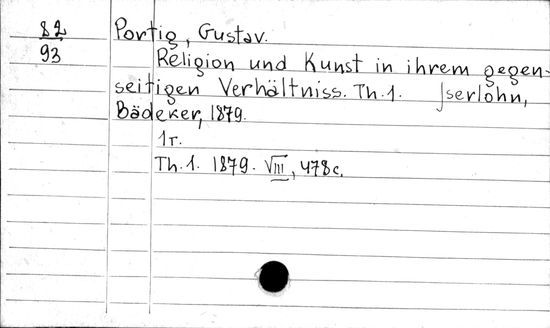 82
93
Portig, Gustav.
Religion und Kunst in ihrem gegen-
seitigen Verhältniss. Th. 1. Iserlohn,
Bädeker, 1879.
1r.
Th. 1. 1879. VIII, 478c.